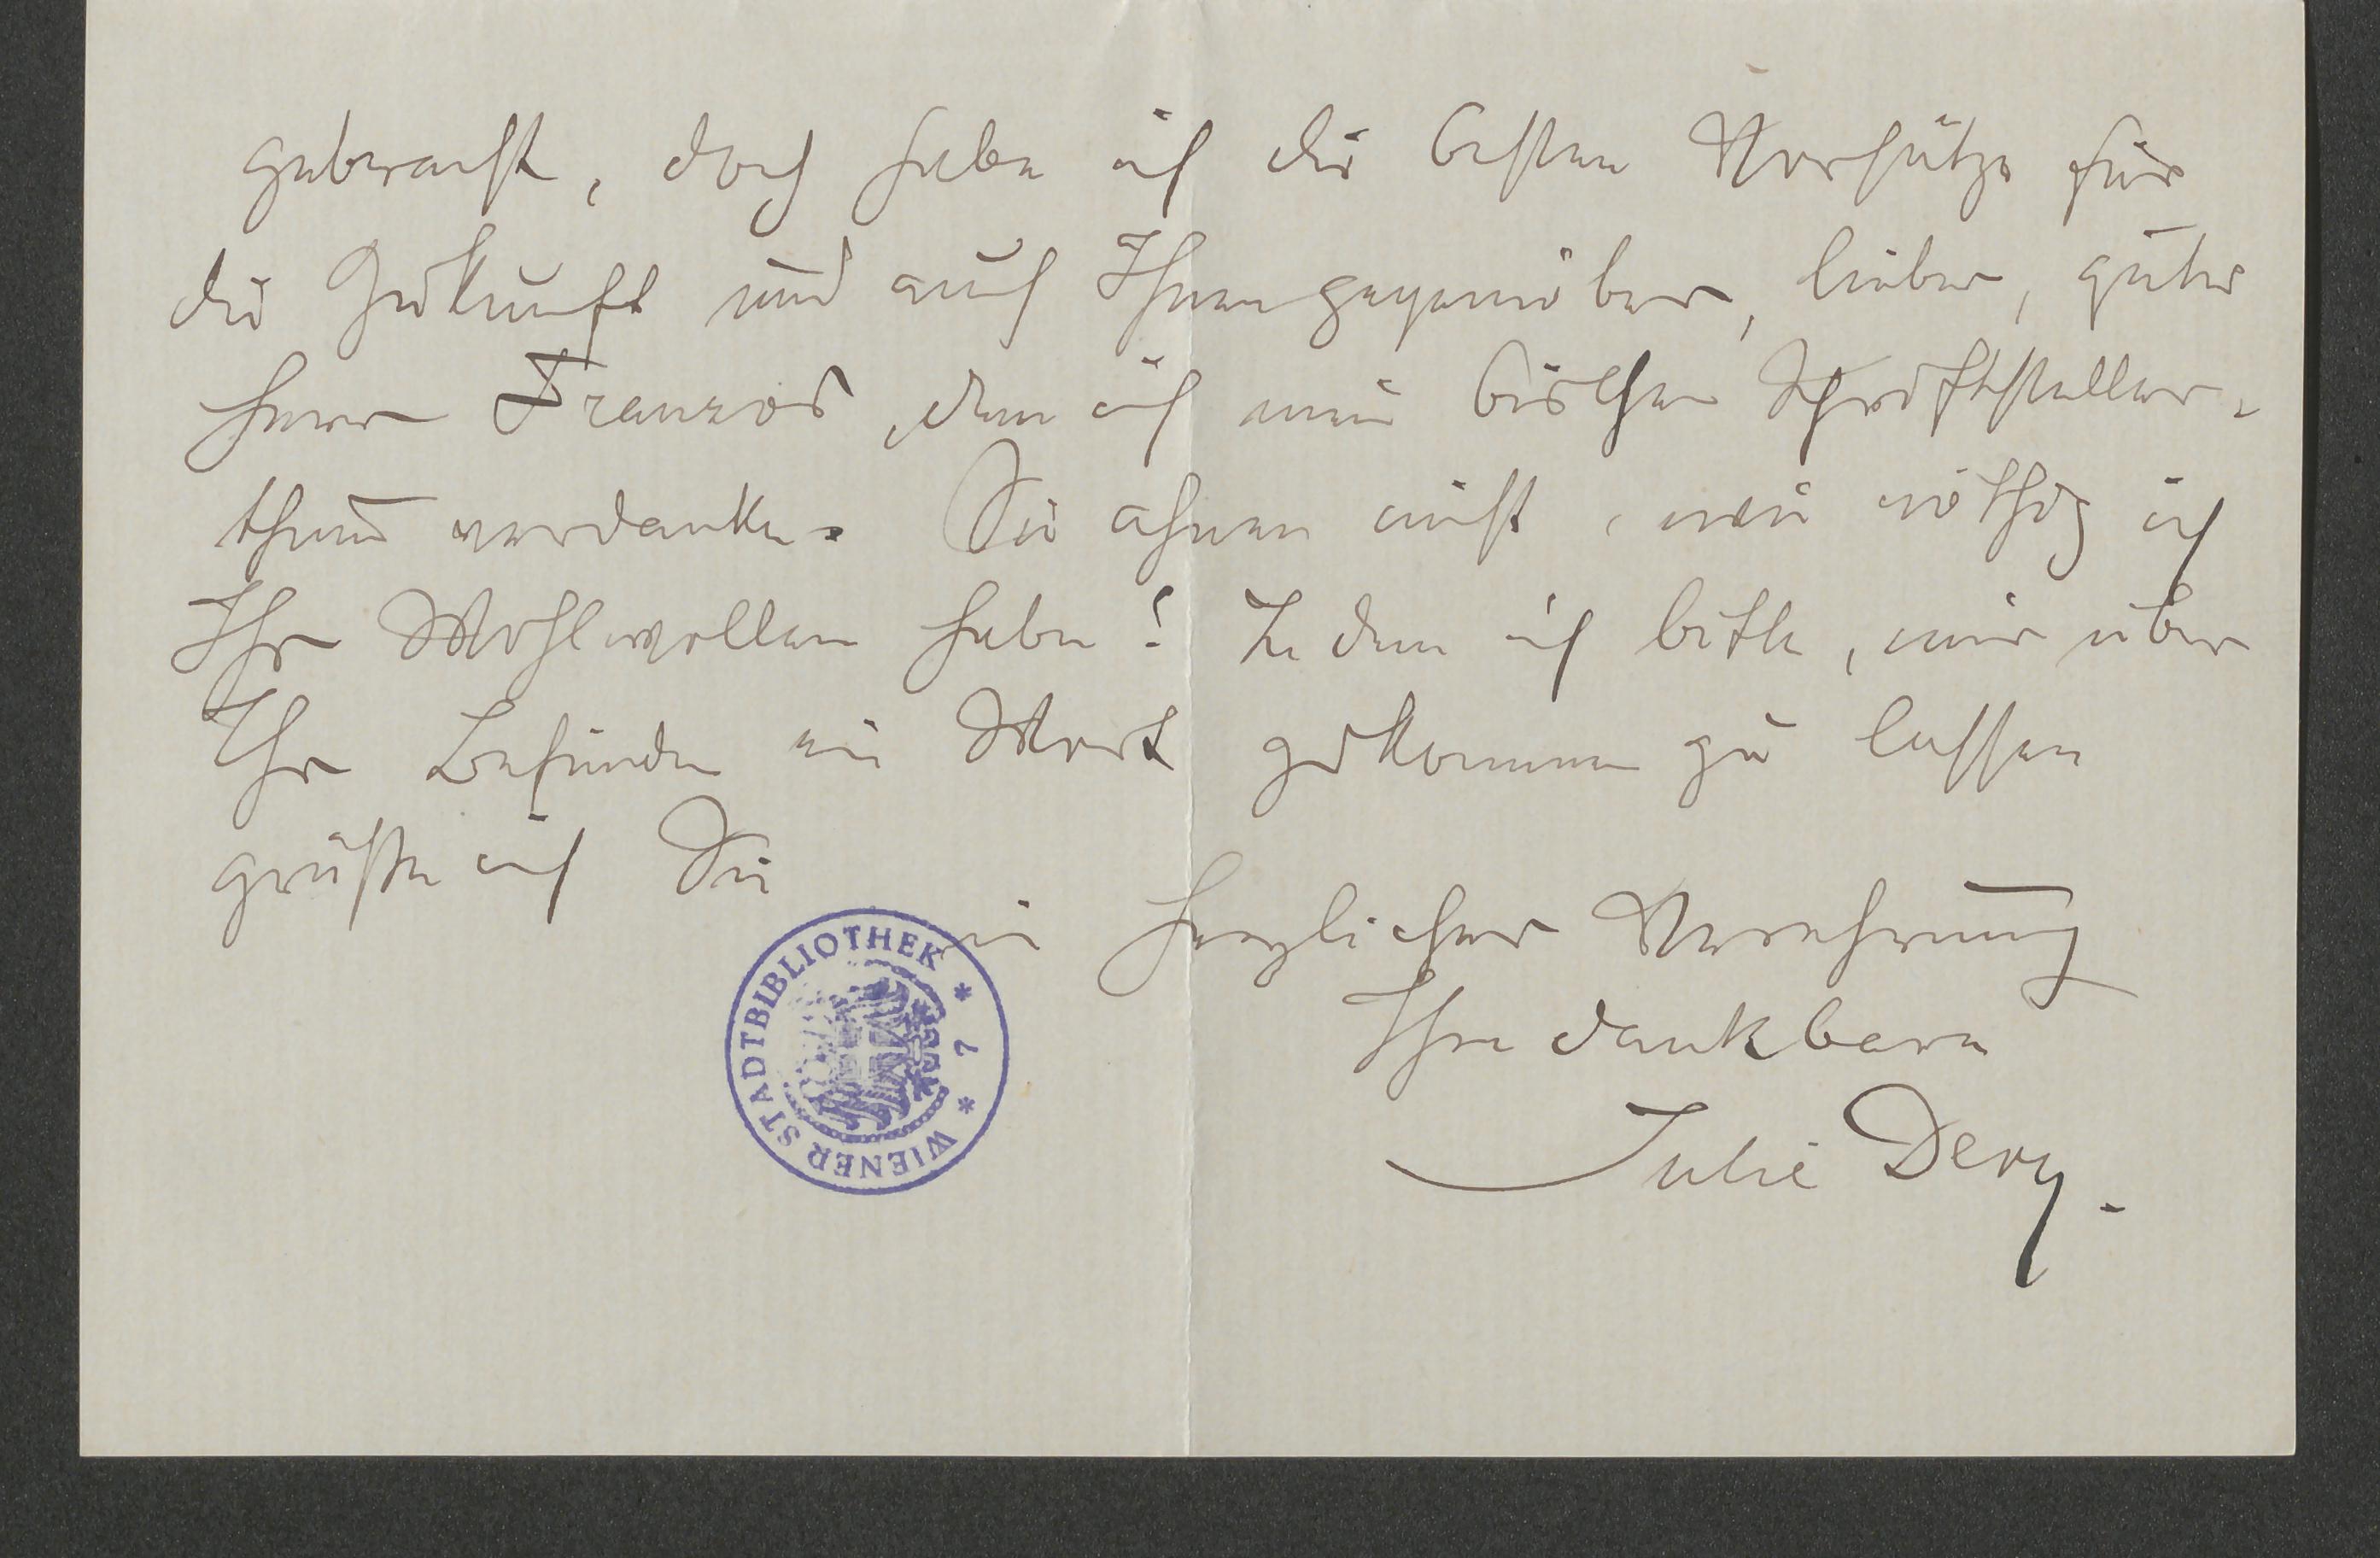 gebracht, doch habe ich die besten Vorsätze für
die Zukunft und auch Ihnen gegenüber, lieber, guter
Herr Franzos, dem ich mein bischen Schriftsteller-
thum verdanke. Sie ahnen nicht, wie nöthig ich
Ihr Wohlwollen habe! Indem ich bitte, mir über
Ihr Befinden ein Wort zukommen zu lassen
grüße ich Sie
in herzlicher Verehrung
Ihre dankbare
Julie Dery.
WIENER STADTBIBLIOTHEK * 7 *